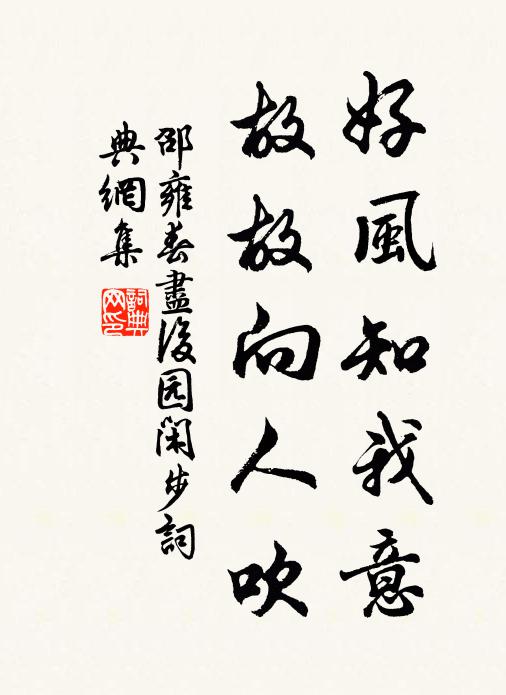 好風知我意
故故向人吹
邵雍春盡後园閑步詞
典網集
詞典
网印